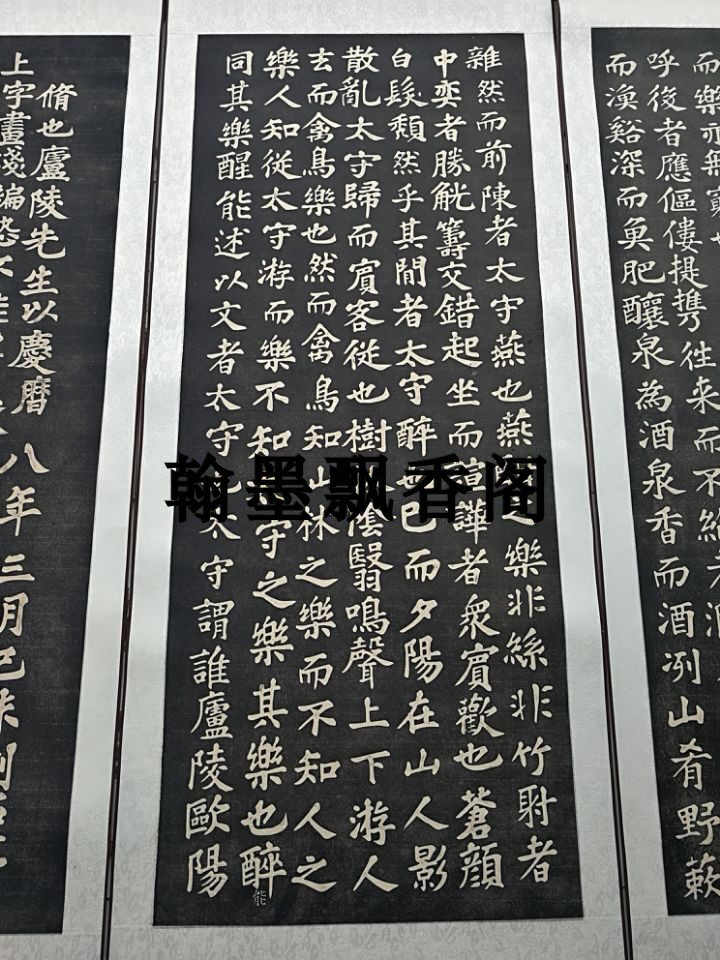 而樂亦無窮也
呼後者應傴僂提攜往来而不絶
而漁谿深而魚肥釀泉為酒泉香而酒冽山肴野蔌
雜然而前陳者太守燕也燕酣之樂非絲非竹射者
中奕者勝觥籌交錯起坐而諠譁者衆賓歡也蒼顔
白髮頽然乎其間者太守醉也已而夕陽在山人影
散亂太守歸而賓客從也樹林陰翳鳴聲上下游人
去而禽鳥樂也然而禽鳥知山林之樂而不知人之
樂人知從太守游而樂不知太守之樂其樂也醉能
同其樂醒能述以文者太守也太守謂誰廬陵歐陽
脩也廬陵先生以慶曆八年三月己未刻石
上字畫淺褊恐不能
翰墨飘香阁